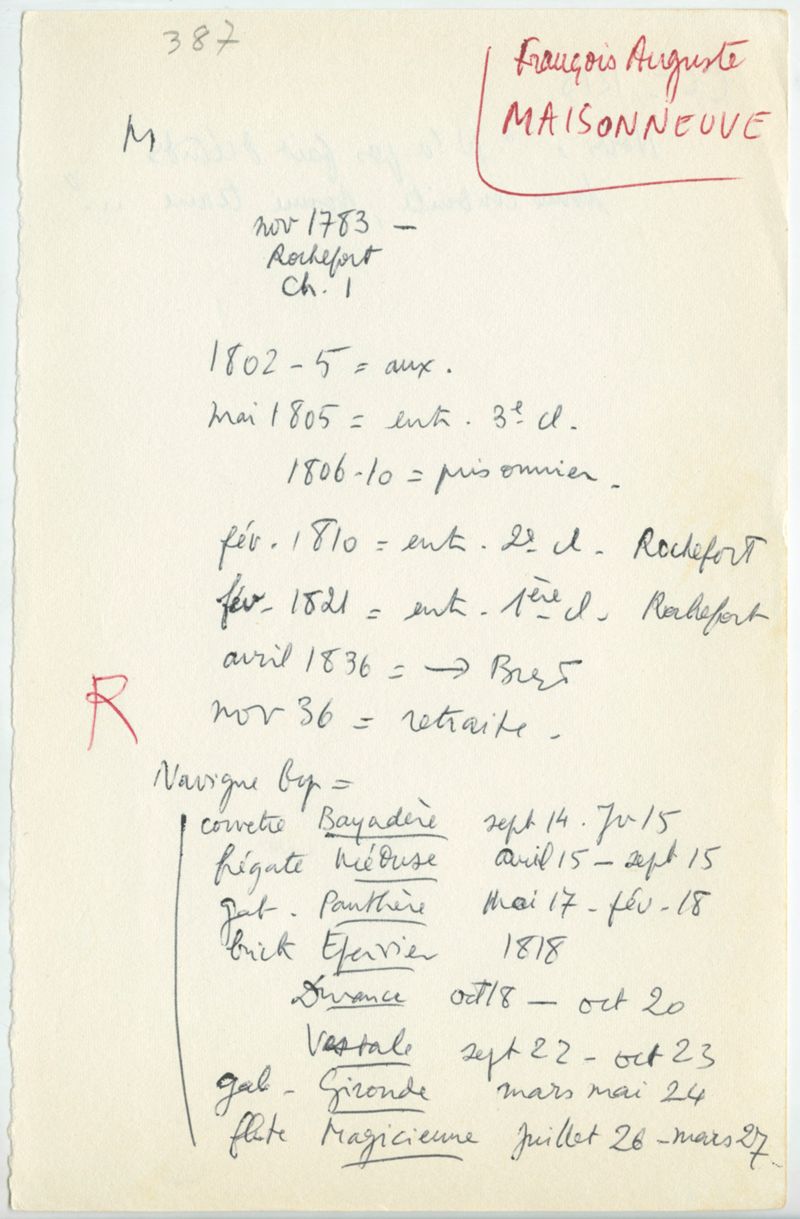 387
François Auguste
MAISONNEUVE
M
nov 1783 —
Rochefort
Ch. 1
1802 - 5 = aux.
mai 1805 = ent. 3e cl.
1806-10 = prisonnier.
fév. 1810 = ent. 2e cl. Rochefort
fév. 1821 = ent. 1ère cl. Rochefort
avril 1836 = → Brest
R
nov 36 = retraite.
Navigue =
corvette Bayadère sept 14. Jv 15
frégate Méduse avril 15 - sept 15
gab. Panthère Mai 17 - fév. 18
brick Epervier 1818
Durance oct 18 — oct 20
Vestale sept 22 - oct 23
gab - Gironde mars mai 24
flute Magicienne Juillet 26 - mars 27